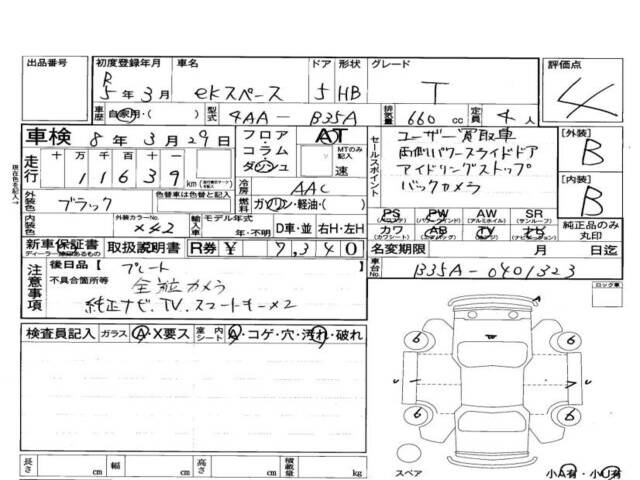 出品番号 初度登録年月 車名 ドア 形状 グレード 評価点
R 5年 3月 eKスペース 5 HB T 4
車歴 自家用・( ) 型式 4AA - B35A 排気量 660 cc 定員 4人
車検 8年 3月 29日 フロア コラム ダッシュ AT MTのみ記入 速
走行 十万 万 千 百 十 一 11639 km
セールスポイント ユーザー買取車
両側パワースライドドア
アイドリングストップ
バックカメラ
[外装] B
[内装] B
冷房 AAC
燃料 ガソリン・軽油・( )
外装色 ブラック 外装カラーNo. X42
内装色 輸入車 モデル年式 年・不明 D車・並 右H・左H
PS PW AW SR
(パワステ) (パワーウィンド) (アルミホイール) (サンルーフ)
カワ AB TV ナビ
(カワシート) (エアバッグ) (ナビゲーション)
純正品のみ丸印
新車保証書 取扱説明書 R券 ¥ 7,340 名変期限 月 日迄
車台No. B35A-0401323
注意事項 後日品【 プレート 】
不具合箇所等 全周カメラ
純正ナビ、TV、スマートキー×2
ロック車
検査員記入 ガラス A・X要ス 室内シート A・コゲ・穴・汚れ・破れ
6 6
6 6
スペア
長さ cm 幅 cm 高さ cm 積載量 kg
小A有・小U有